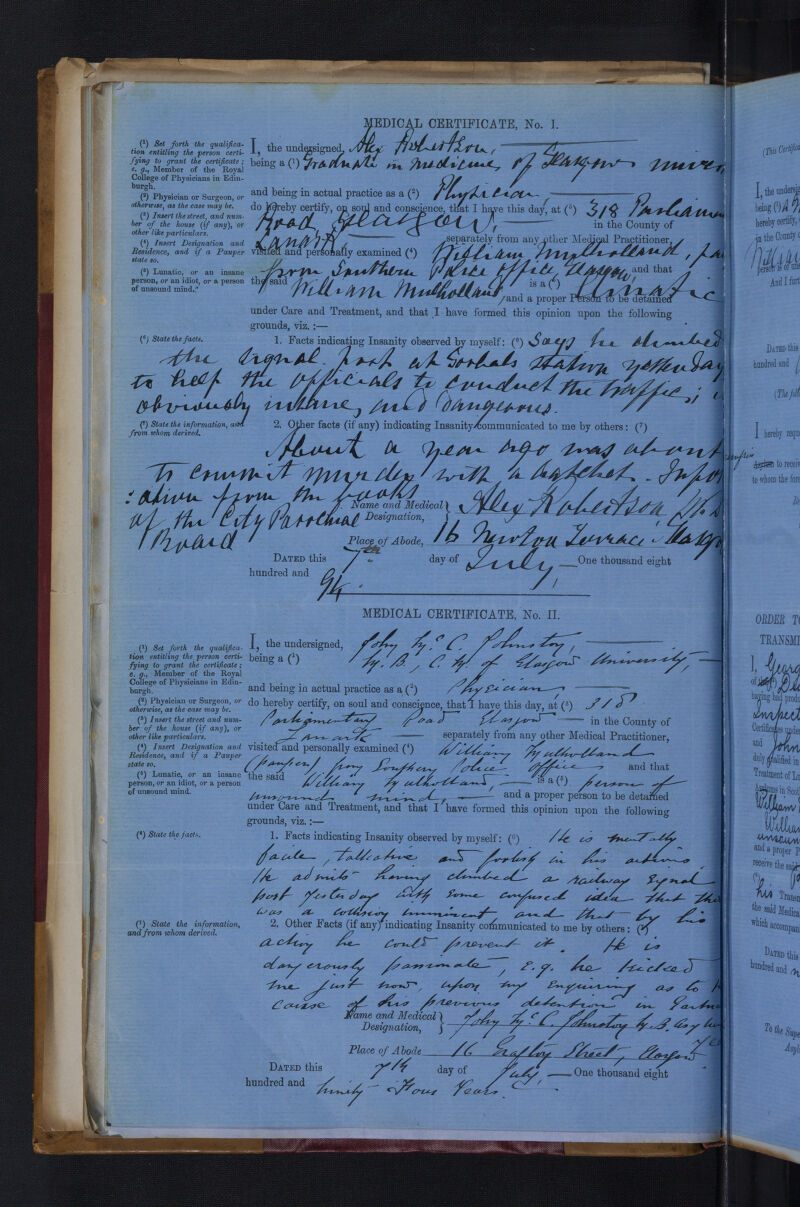 MEDICAL CERTIFICATE, No. I.
(¹) Set forth the qualifica-
tion entitling the person certi-
fying to grant the certificate;
e. g., Member of the Royal
College of Physicians in Edin-
burgh.
(²) Physician or Surgeon, or
otherwise, as the case may be.
(³) Insert the street, and num-
ber of the house (if any), or
other like particulars.
(⁴) Insert Designation and
Residence, and if a Pauper
state so.
(⁵) Lunatic, or an insane
person, or an idiot, or a person
of unsound mind.
I, the undersigned, Alex Robertson,
being a (¹) Graduate in Medicine, of Glasgow
and being in actual practice as a (²) Physician
do hereby certify, on soul and conscience, that I have this day, at (³) 318
Road, Glasgow, in the County of
Lanark, separately from any other Medical Practitioner,
visited and personally examined (⁴) William Mulholland,
from Southern Police Office, and that
the said William Mulholland is a (⁵) Lunatic
and a proper Person to be detained
under Care and Treatment, and that I have formed this opinion upon the following
grounds, viz. :—
(⁶) State the facts.
1. Facts indicating Insanity observed by myself: (⁶) Says he climbed
the signal post at Gorbals station yesterday
to help the officials to conduct the traffic;
obviously insane, and dangerous.
(⁷) State the information, and
from whom derived.
2. Other facts (if any) indicating Insanity communicated to me by others: (⁷)
About a year ago was about
to commit murder with a hatchet. Infor
:ation from the books
of the City Parochial
Board
Name and Medical Designation, Alex Robertson
Place of Abode, 16 Newton Terrace
DATED this 7th day of July, One thousand eight
hundred and 94.
MEDICAL CERTIFICATE, No. II.
(¹) Set forth the qualifica-
tion entitling the person certi-
fying to grant the certificate;
e. g., Member of the Royal
College of Physicians in Edin-
burgh.
(²) Physician or Surgeon, or
otherwise, as the case may be.
(³) Insert the street and num-
ber of the house (if any), or
other like particulars.
(⁴) Insert Designation and
Residence, and if a Pauper
state so.
(⁵) Lunatic, or an insane
person, or an idiot, or a person
of unsound mind.
I, the undersigned, John McC. Johnston,
being a (¹) M.B. C.M. of Glasgow University,
and being in actual practice as a (²) Physician
do hereby certify, on soul and conscience, that I have this day, at (³) 318
Parliamentary Road Glasgow in the County of
Lanark separately from any other Medical Practitioner,
visited and personally examined (⁴) William Mulholland
(pauper) from Southern Police Office and that
the said William Mulholland, is a (⁵) person of
unsound mind, and a proper person to be detained
under Care and Treatment, and that I have formed this opinion upon the following
grounds, viz. :—
(⁶) State the facts.
1. Facts indicating Insanity observed by myself: (⁶) He is mentally
facile, talkative and foolish in his actions
He admits having climbed a railway signal
post yesterday with some confused idea that
was a collision imminent, and that by his
(⁷) State the information,
and from whom derived.
2. Other Facts (if any) indicating Insanity communicated to me by others: (⁷)
action he could prevent it. He is
dangerously passionate, e.g. he kicked
me just now, upon my enquiring as to
cause of his previous detention in
Name and Medical Designation, John McC. Johnston M.B.
Place of Abode 16 Grafton Street, Glasgow
DATED this 7th day of July, One thousand eight
hundred and ninety Four Years.
I, the
being (¹)
hereby certify,
in the County
DATED this
hundred and
I hereby
to whom the
ORDER
I,
and John
duly qualified in
Treatment of
William
and a proper
receive the said
the said
DATED this
hundred and
To the